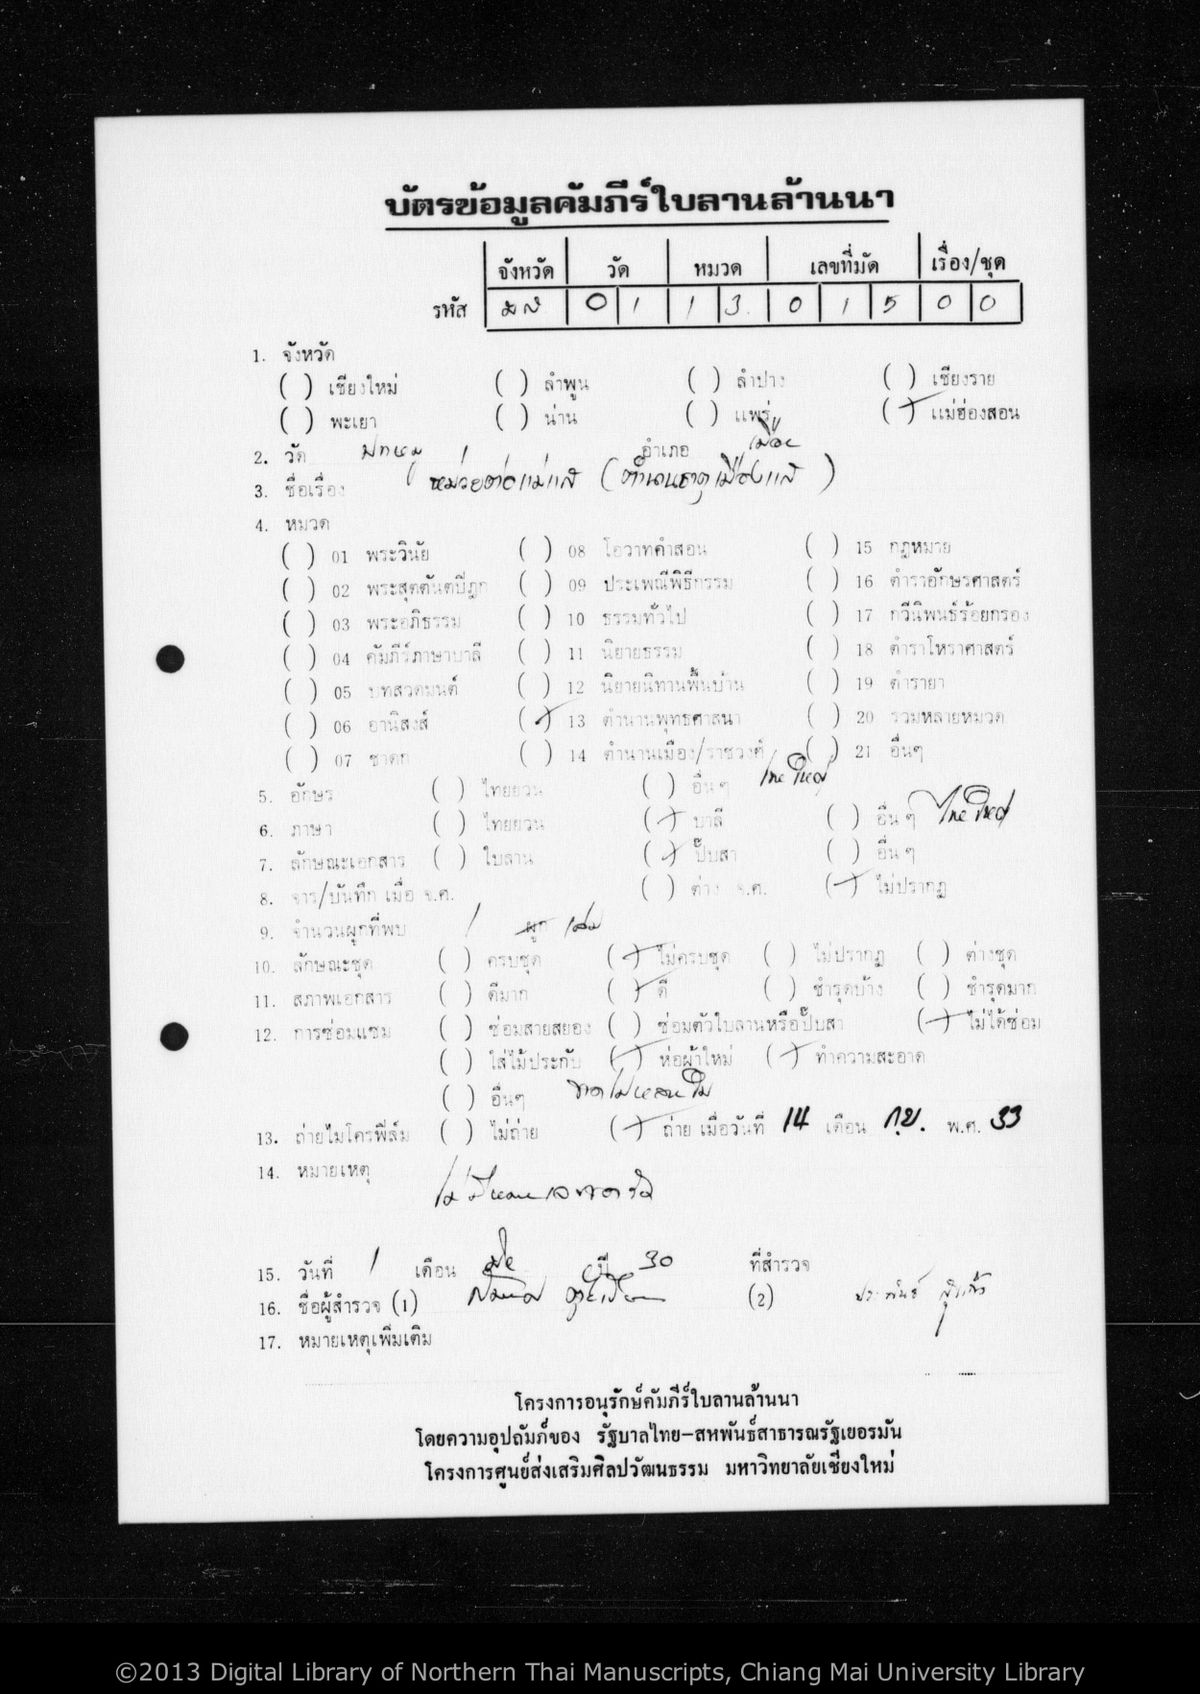 บัตรข้อมูลคัมภีร์ใบลานล้านนา
จังหวัด วัด หมวด เลขที่มัด เรื่อง/ชุด
รหัส มส 0 1 1 3 0 1 5 0 0
1. จังหวัด
( ) เชียงใหม่ ( ) ลำพูน ( ) ลำปาง ( ) เชียงราย
( ) พะเยา ( ) น่าน ( ) แพร่ (/) แม่ฮ่องสอน
2. วัด อำเภอ เมือง
3. ชื่อเรื่อง หม่วยต่อแม่แส (ตำนานธาตุเมืองแส)
4. หมวด
( ) 01 พระวินัย ( ) 08 โอวาทคำสอน ( ) 15 กฎหมาย
( ) 02 พระสุตตันตปิฎก ( ) 09 ประเพณีพิธีกรรม ( ) 16 ตำราอักษรศาสตร์
( ) 03 พระอภิธรรม ( ) 10 ธรรมทั่วไป ( ) 17 กวีนิพนธ์ร้อยกรอง
( ) 04 คัมภีร์ภาษาบาลี ( ) 11 นิยายธรรม ( ) 18 ตำราโหราศาสตร์
( ) 05 บทสวดมนต์ ( ) 12 นิยายนิทานพื้นบ้าน ( ) 19 ตำรายา
( ) 06 อานิสงส์ (/) 13 ตำนานพุทธศาสนา ( ) 20 รวมหลายหมวด
( ) 07 ชาดก ( ) 14 ตำนานเมือง/ราชวงศ์ ( ) 21 อื่นๆ
5. อักษร ( ) ไทยยวน ( ) อื่นๆ ไทยใหญ่
6. ภาษา ( ) ไทยยวน (/) บาลี ( ) อื่นๆ ไทยใหญ่
7. ลักษณะเอกสาร ( ) ใบลาน (/) ปั๊บสา ( ) อื่นๆ
8. จาร/บันทึก เมื่อ จ.ศ. ( ) ต่าง จ.ศ. (/) ไม่ปรากฏ
9. จำนวนผูกที่พบ 1 ผูก เล่ม
10. ลักษณะชุด ( ) ครบชุด (/) ไม่ครบชุด ( ) ไม่ปรากฏ ( ) ต่างชุด
11. สภาพเอกสาร ( ) ดีมาก (/) ดี ( ) ชำรุดบ้าง ( ) ชำรุดมาก
12. การซ่อมแซม ( ) ซ่อมสายสยอง ( ) ซ่อมตัวใบลานหรือปั๊บสา (/) ไม่ได้ซ่อม
( ) ใส่ไม้ประกับ (/) ห่อผ้าใหม่ (/) ทำความสะอาด
( ) อื่นๆ
13. ถ่ายไมโครฟิล์ม ( ) ไม่ถ่าย (/) ถ่าย เมื่อวันที่ 14 เดือน กย. พ.ศ. 33
14. หมายเหตุ
15. วันที่ 1 เดือน ปี 30 ที่สำรวจ
16. ชื่อผู้สำรวจ (1) (2) ประพันธ์
17. หมายเหตุเพิ่มเติม
โครงการอนุรักษ์คัมภีร์ใบลานล้านนา
โดยความอุปถัมภ์ของ รัฐบาลไทย-สหพันธ์สาธารณรัฐเยอรมัน
โครงการศูนย์ส่งเสริมศิลปวัฒนธรรม มหาวิทยาลัยเชียงใหม่
©2013 Digital Library of Northern Thai Manuscripts, Chiang Mai University Library